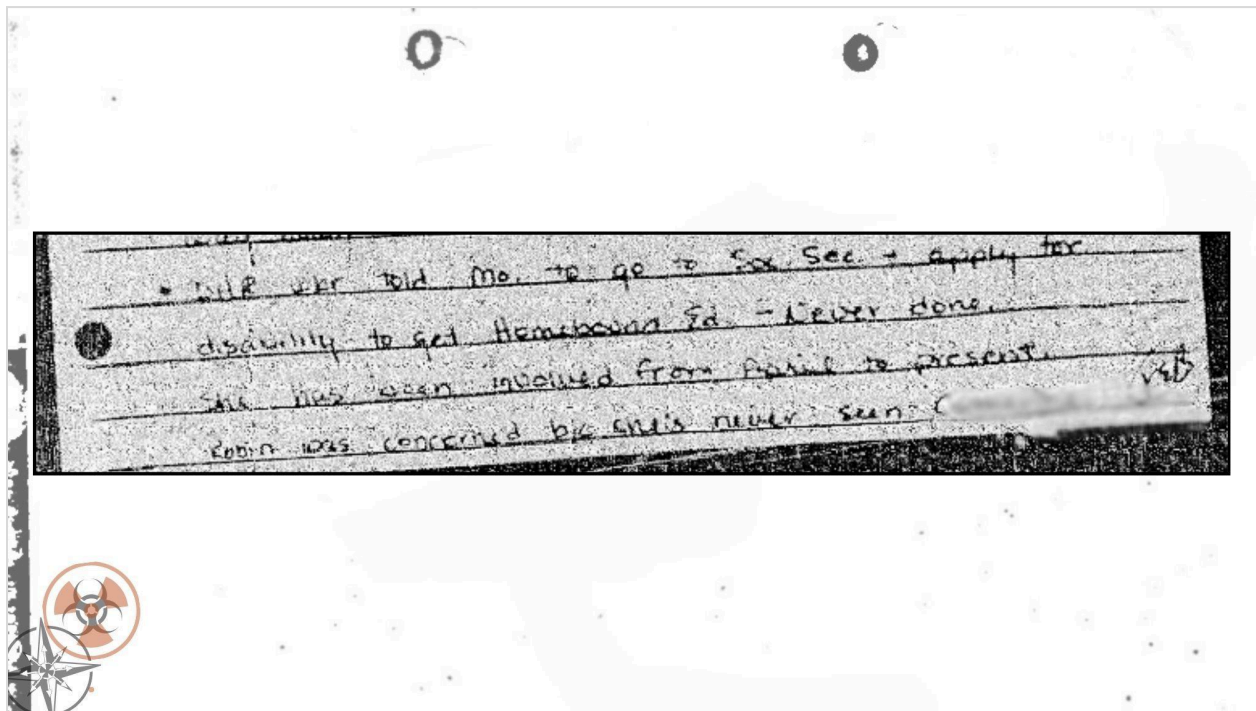 told Mo. to go to Soc Sec. + apply for
disability to get Homebound Ed. - Never done.
She has been involved from April to present.
Robin was concerned b/c she's never seen